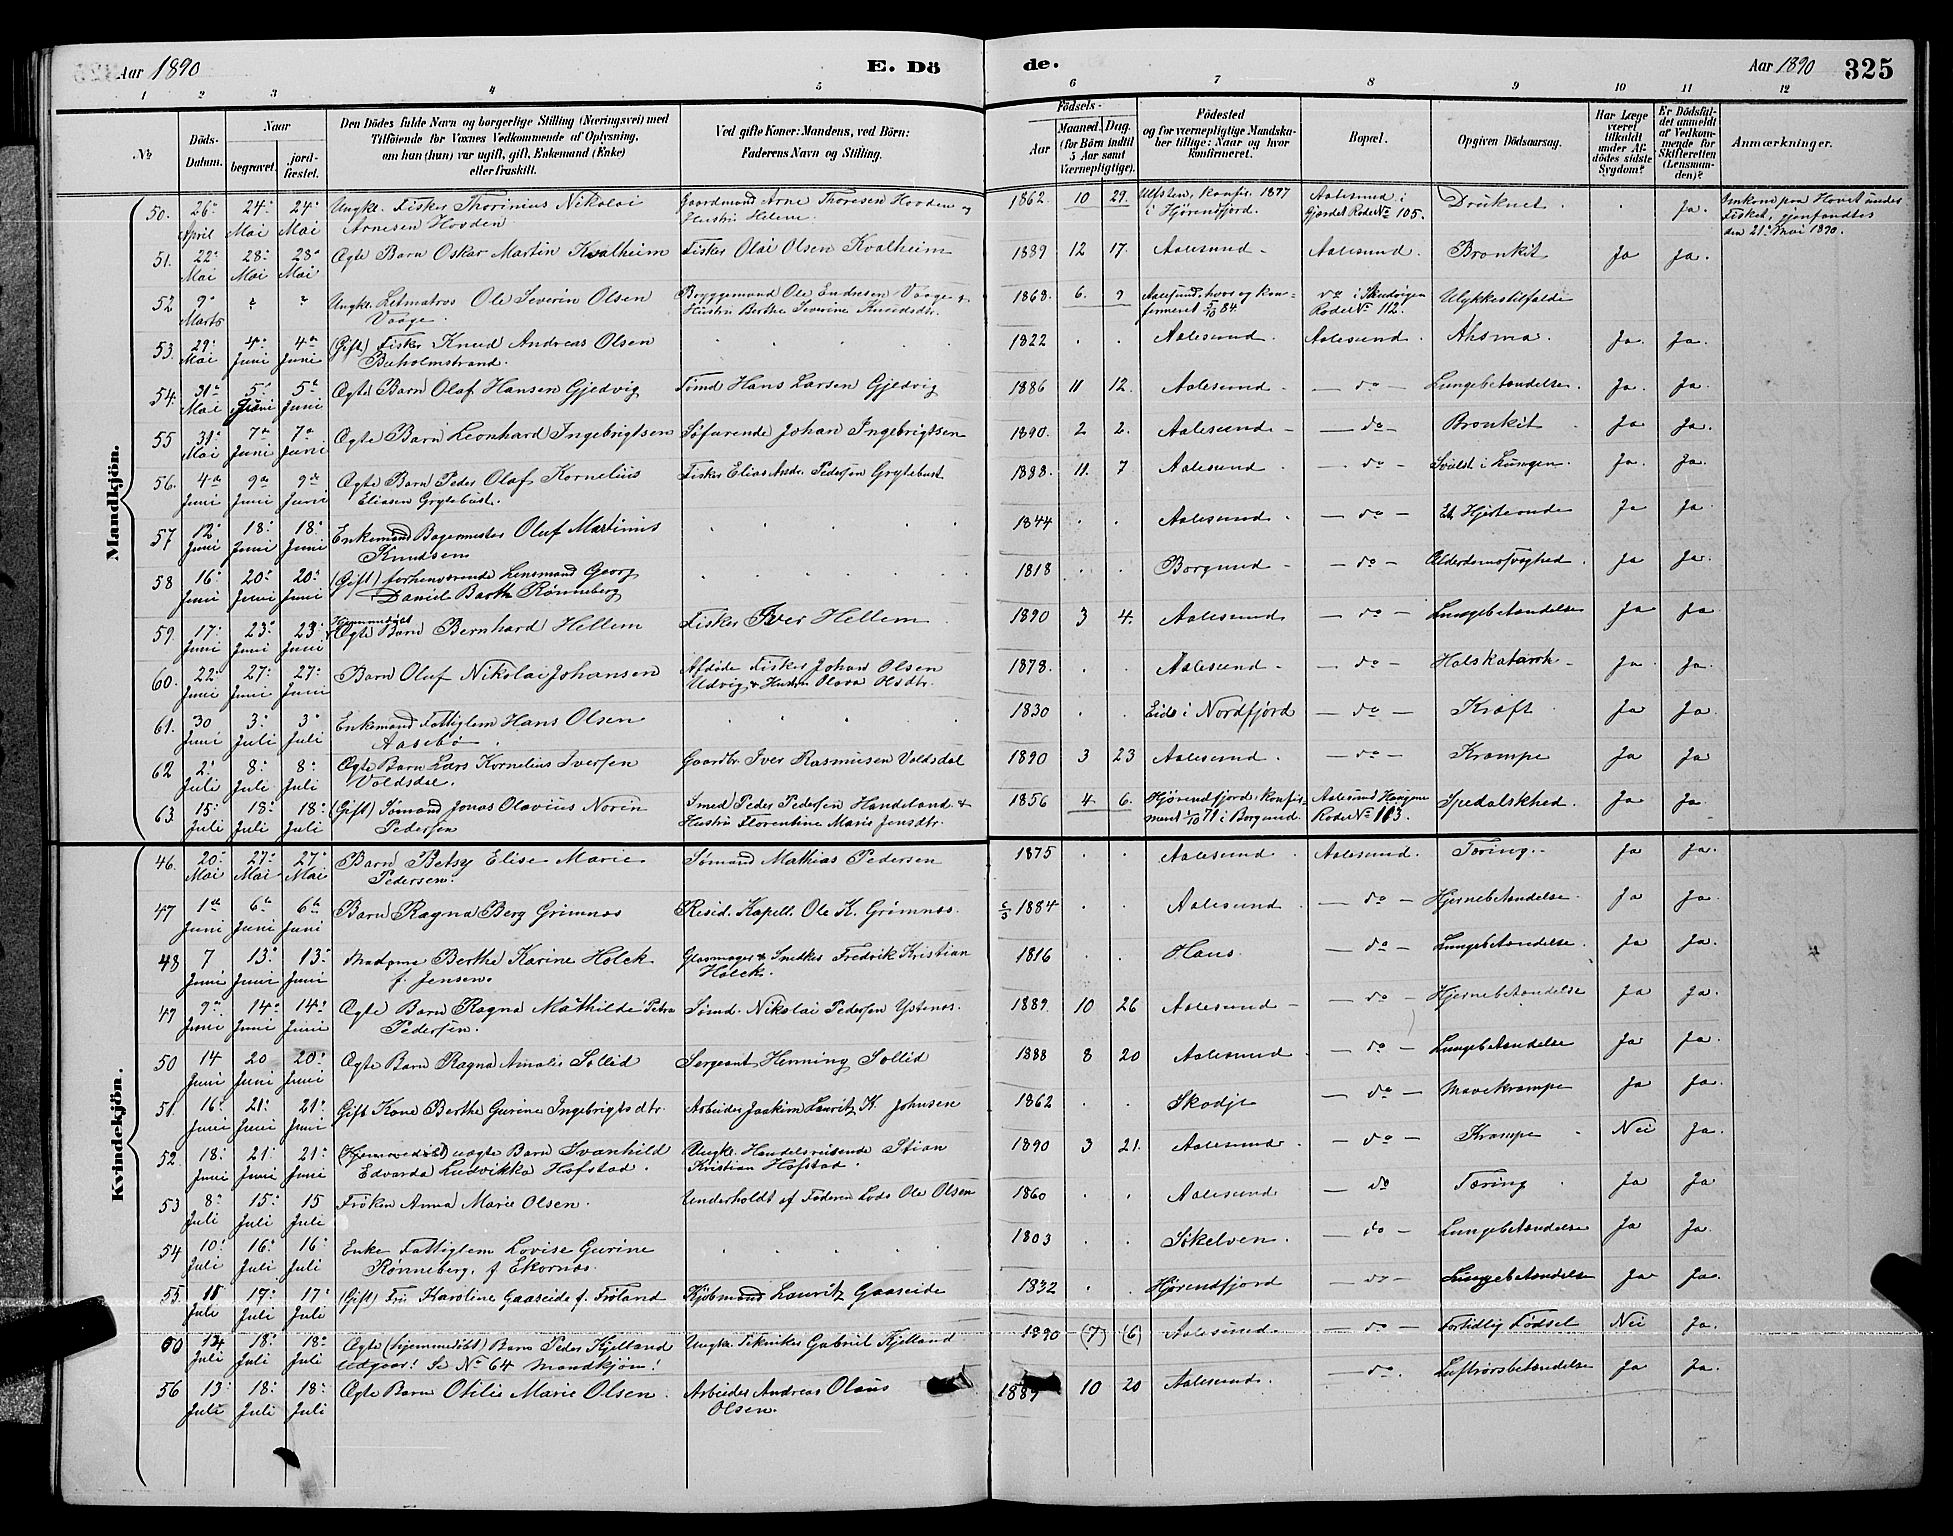 Aar 1890
E. Dö
de.
Aar 1890
325
1 2 3 4 5 6 7 8 9 10 11 12
№
Döds-Datum.
Naar
begravet.
jord-fæstet.
Den Dödes fulde Navn og borgerlige Stilling (Næringsvei) med
Tilföiende for Voxnes Vedkommende af Oplysning,
om han (hun) var ugift, gift, Enkemand (Enke)
eller fraskilt.
Ved gifte Koner: Mandens, ved Börn:
Faderens Navn og Stilling.
Födsels-
Aar
Maaned. Dag.
(for Börn indtil
5 Aar samt
Værnepligtige).
Födested
og for værnepligtige Mandska-
ber tillige: Naar og hvor
konfirmeret.
Bopæl.
Opgiven Dödsaarsag.
Har Læge
været
tilkaldt
under Af-
dödes sidste
Sygdom?
Er Dödsfal-
det anmeldt
af Vedkom-
mende for
Skifteretten
(Lensman-
den)?
Anmærkninger.
Mandkjön.
50. 26 April 24 Mai 24 Mai Ungk. Fisker Thorinius Nikolai Arnesen Hovden Gaardmand Arne Thoresen Hovden og Hustru Helene 1862 10 29. Ulfsten, Konfir. 1877 i Hjørendfjord. Aalesund i Gjørdet Rode No 105. Druknet. Ja. Omkom paa Havet under Fisket, gjenfandtes den 21 Mai 1890.
51. 22 Mai 28 Mai 28 Mai Ægte Barn Oskar Martin Kvalheim Fisker Olai Olsen Kvalheim 1889 12 17. Aalesund Aalesund. Bronkit Ja Ja.
52 9 Marts " " Ungk. Letmatros Ole Severin Olsen Vaage. Bryggemand Ole Endresen Vaage & Hustru Berthe Severine Knudsdtr. 1868. 6. 9 Aalesund, hvor og konfirmeret 5/10 84. do i Skudvigen Rode No 112. Ulykkestilfælde
53. 29 Mai 4 Juni 4 Juni (Gift) Fisker Knud Andreas Olsen Buholmstrand. 1822 Aalesund Aalesund. Ahsma. Ja. Ja.
54. 31 Mai 5 Juni 5 Juni Ægte Barn Olaf Hansen Gjedvig Sømd Hans Larsen Gjedvig 1886 11 12. Aalesund - do - Lungebetændelse. Ja. Ja.
55 31 Mai 7 Juni 7 Juni Ægte Barn Leonhard Ingebrigtsen Søfarende Johan Ingebrigtsen 1890. 2 2. Aalesund - do - Bronkit Ja Ja.
56. 4 Juni 9 Juni 9 Juni Ægte Barn Peder Olaf Kornelius Eliasen Grytebust. Fisker Elias Andr. Pedersen Grytebust 1888. 11. 7 Aalesund - do - Svulst i Lungen. Ja. Ja.
57 12 Juni 18 Juni 18 Juni Enkemand Bagermester Oluf Martinus Knudsen 1844 Aalesund. - do - Et Hjerteonde Ja Ja.
58 16 Juni 20 Juni 20 Juni (Gift) forhenværende Lensmand Georg Daniel Barth Rønneberg 1818 Borgund - do - Alderdomssvaghed. Ja Ja.
59. 17 Juni 23 Juni 23 Juni Hjemmedøbt Ægte Barn Bernhard Hellem Fisker Iver Hellem 1890 3 4. Aalesund - do - Lungebetændelse Ja Ja.
60. 22 Juni 27 Juni 27 Juni Barn Oluf Nikolai Johansen Afdøde Fisker Johan Olsen Udvig & Hustru Olava Olsdtr. 1878. Aalesund - do - Halskatarrh Ja Ja.
61. 30 Juni 3 Juli 3 Juli Enkemand Fattiglem Hans Olsen Aasebø. 1830 Eide i Nordfjord - do - Kræft Ja Ja.
62 2 Juli 8 Juli 8 Juli Ægte Barn Lars Kornelius Iversen Voldsdal. Gaardbr. Iver Rasmusen Voldsdal 1890 3 23 Aalesund. - do - Krampe Ja Ja
63. 15 Juli 18 Juli 18 Juli (Gift) Sømand Jonas Olavius Norin Pedersen Smed Peder Pedersen Handeland & Hustru Florentine Marie Jensdtr. 1856 4 6. Hjørendfjord, Konfirmeret 1/10 71 i Borgund Aalesund Haugene Rode No 113. Spedalskhed. Ja Ja.
Kvindekjön.
46. 20 Mai 27 Mai 27 Mai Barn Betsy Elise Marie Pedersen. Sømand Mathias Pedersen 1875 Aalesund Aalesund. Tæring. Ja Ja.
47 1 Juni 6 Juni 6 Juni Barn Ragna Berg Grimnæs Resid. Kapell. Ole K. Grimnæs. 1884 Aalesund. - do - Hjernebetændelse. Ja Ja
48 7 Juni 13 Juni 13 Juni Madame Berthe Karine Holck f. Jensen. Glasmager & Snedker Fredrik Kristian Holck. 1816 Hans. - do - Lungebetændelse. Ja Ja.
49 9 Juni 14 Juni 14 Juni Ægte Barn Ragna Mathilde Petra Pedersen. Sømd. Nikolai Pedersen Ystenæs. 1889. 10 26 Aalesund - do - Hjernebetændelse Ja Ja.
50 14 Juni 20 Juni 20 Juni Ægte Barn Ragna Amalie Sollid Sergeant Henning Sollid 1888 8 20 Aalesund - do - Lungebetændelse Ja Ja.
51. 16 Juni 21 Juni 21 Juni Gift Kone Berthe Gurine Ingebrigtsdtr. Arbeider Joakim Lauritz K. Johnsen 1862 Skodje - do - Mavekrampe Ja Ja.
52. 18 Juni 21 Juni 21 Juni (Hjemmedøbt) uægte Barn Svanhild Edvarda Ludvikka Hofstad. Ungk. Handelsreisende Stian Kristian Hofstad. 1890 3 21. Aalesund. - do - Krampe Nei Ja.
53 8 Juli 15 Juli 15 Juli Frøken Anna Marie Olsen. Underholdt af Faderen Lods Ole Olsen 1860 Aalesund - do Tæring Ja Ja.
54 10 Juli 16 Juli 16 Juli Enke Fattiglem Lovise Gurine Rønneberg, f Ekornæs. 1803 Søkelven. - do - Lungebetændelse Ja Ja.
55. 11 Juli 17 Juli 17 Juli (Gift) Fru Karoline Gaaseide f. Frøland Kjøbmand Lauritz Gaaseide 1832 Hjørendfjord - do - Lungebetændelse Ja Ja.
14 Juli 18 Juli 18 Juli Ægte (hjemmedøbt) Barn Peder Kjelland Udgaar! Se No 64 Mandkjøn! Ungk. Tekniker Gabriel Kjelland 1890 (7) (6) Aalesund. - do - Fortidlig Fødsel Nei Ja.
56 13 Juli 18 Juli 18 Juli Ægte Barn Otilie Marie Olsen. Arbeider Andreas Olaus Olsen. 1889 10 20 Aalesund. - do. Luftrørsbetændelse Ja Ja.